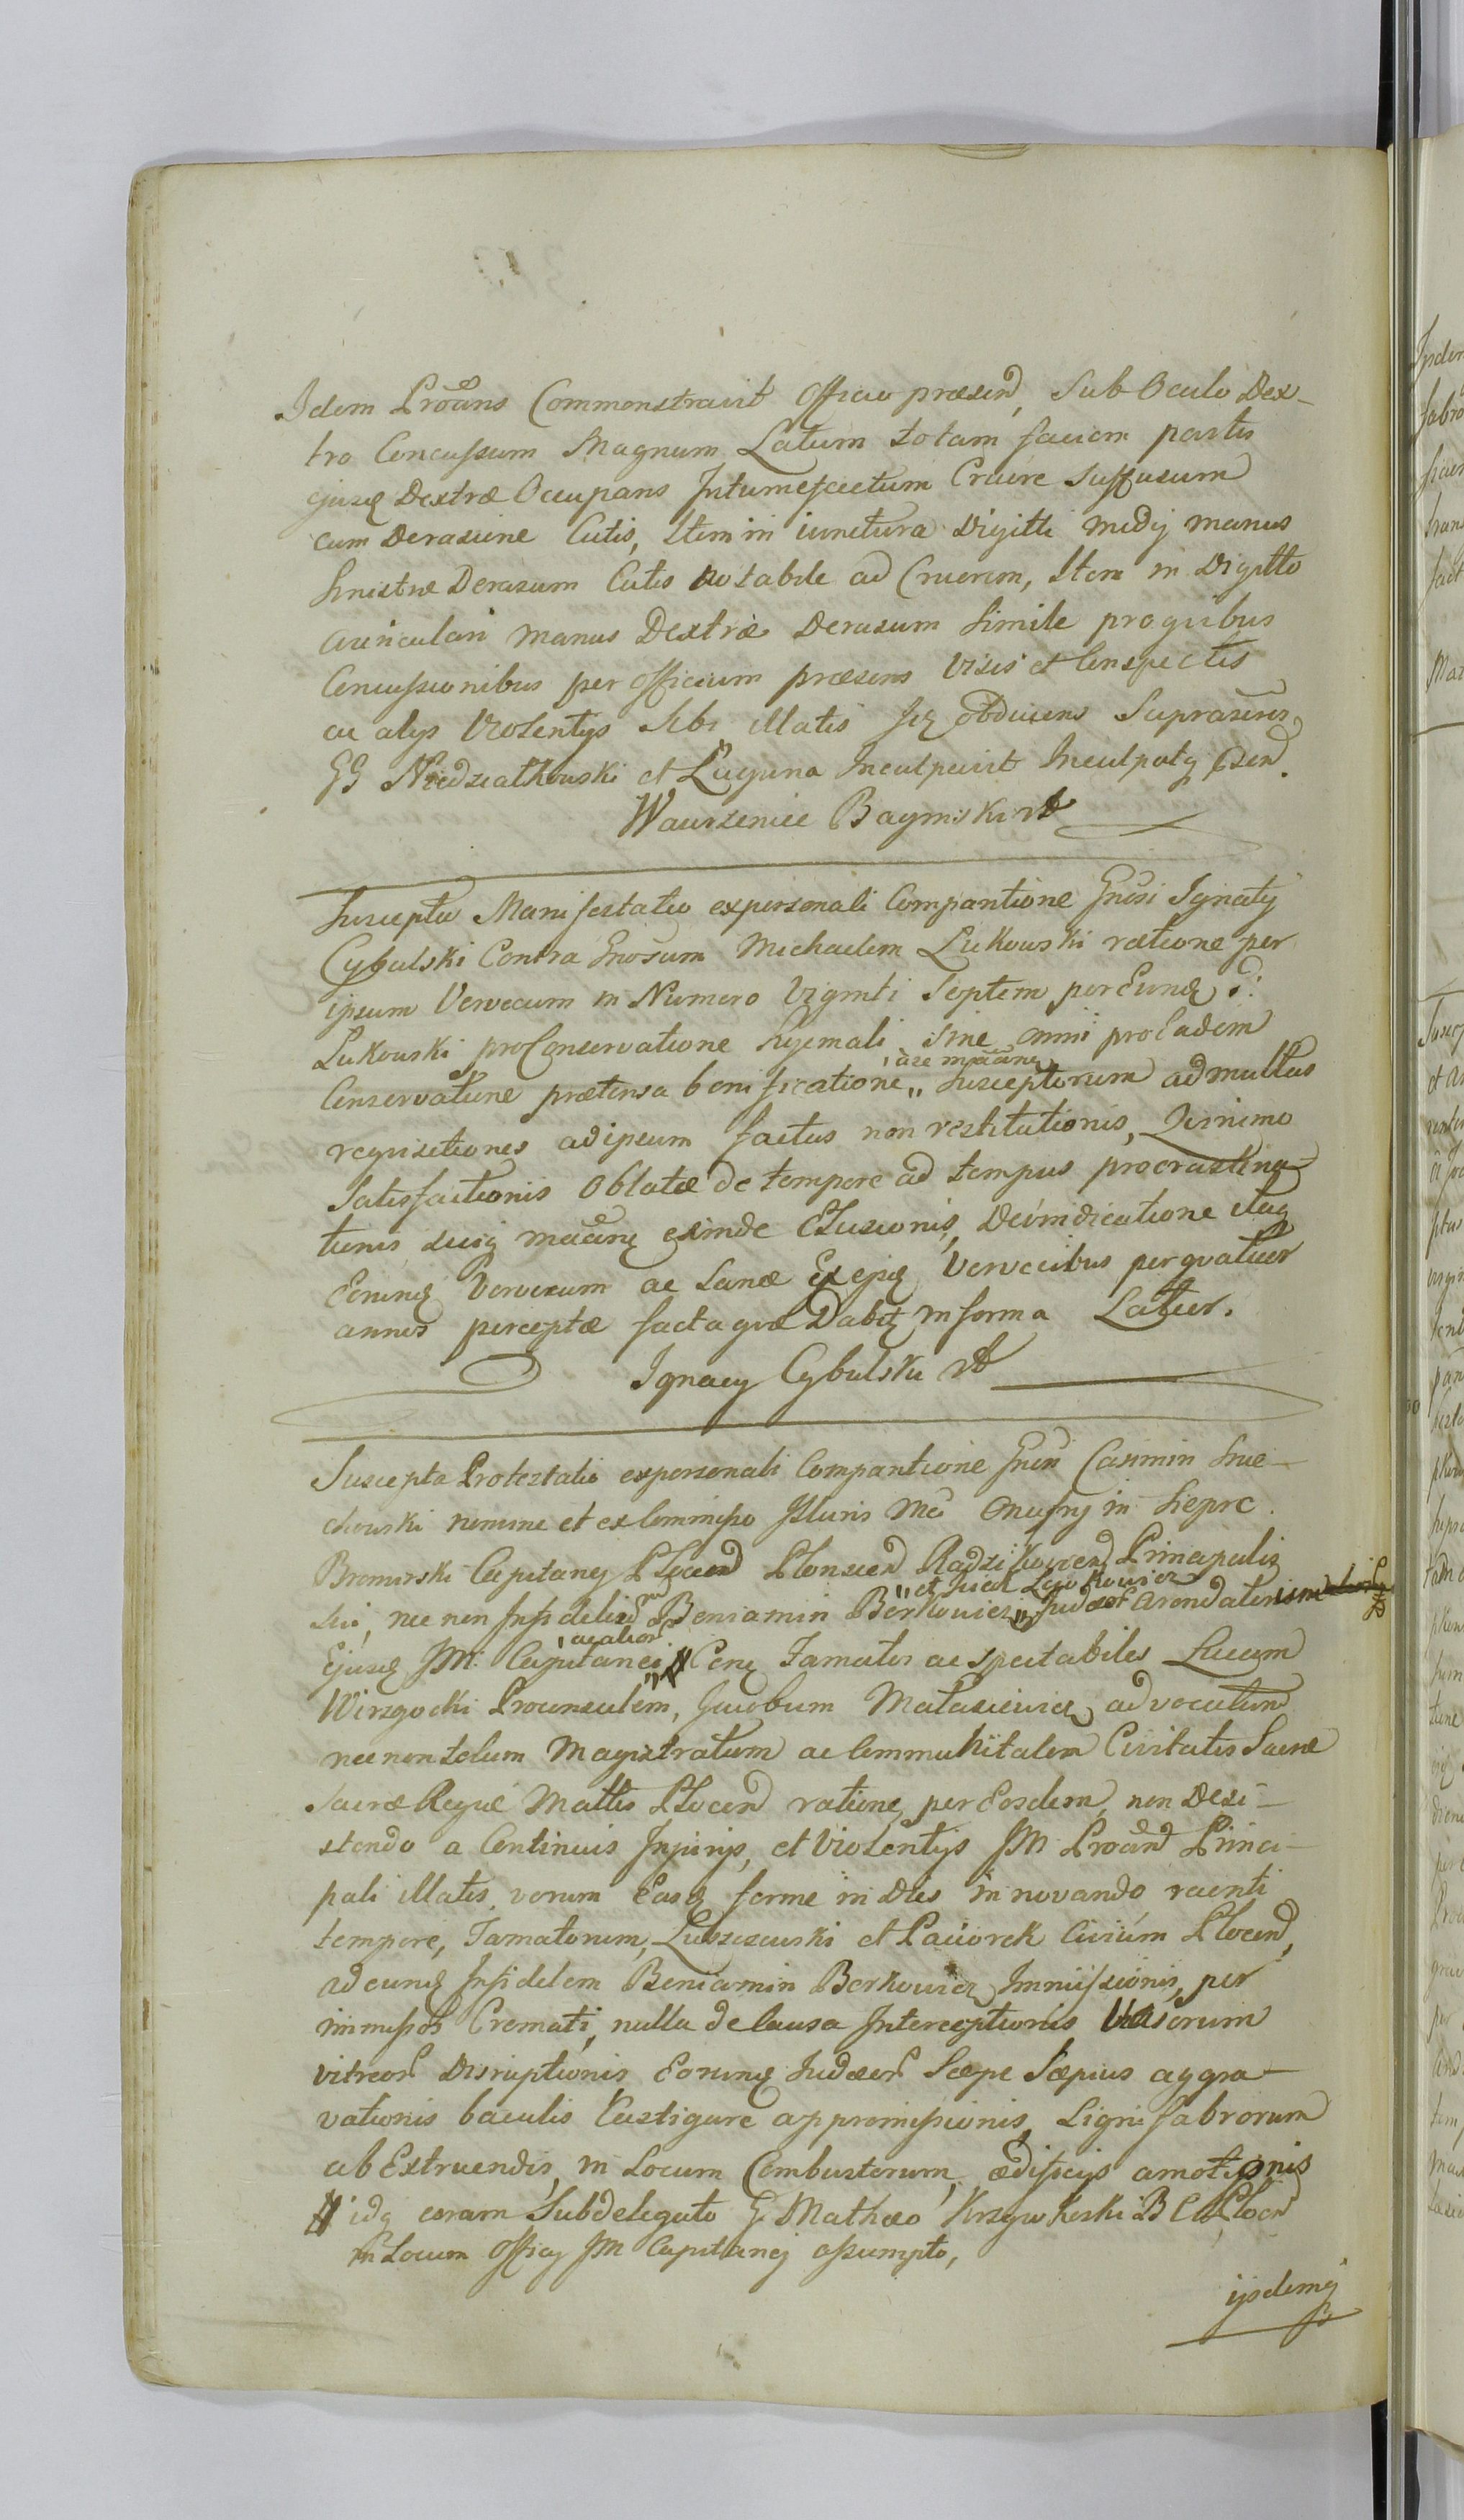 Idem Proãns Commonstravit Officio præsend, Sub Oculo Dex-
tro Concussum Magnum Latum totam faciem partis
ejusq Dextræ Occupans Intumefactum Cruore Suffusum
cum Derasione Cutis, Item in iunctura Digitti medij manus
Sinistræ Derasum Cutis notabile ad Cruorem, Item in Digitto
auriculari manus Dextræ Derasum Simile pro quibus
Concussionibus per Officium præsens Visis et Conspectis
ac alijs Violentijs Sibi illatis Seq obducens Supra
GG Niedziałkowski et Łaguna Inculpavit Inculpatq
Wawrzeniec Baymski
Suscepta Manifestatio ex personali Comparitione Gnosi Ignatij
Cybulski Contra Gnosum Michaelem Łukowski ratione per
ipsum Vervecum in Numero Viginti Septem per Eundq d:
Łukowski pro Conservatione hyemali Sine omni pro Eadem
Conservatione prætensa bonificatione, „ Susceptorum ad multas
requisitiones ad ipsum factas non restitutionis, Quinimo
Satisfactionis Oblatæ de tempore ad tempus procrastina-
tionis suiq exinde Elusionis, Deimdicatione itaq
Eorundq Vervecum ac Lanæ Ex ejsq Vervecibus per qvatuor
annos perceptæ facta qvæ Dabit in forma Latior.
Ignacy Cybulski
Suscepta Protestatio ex personali Comparitione Gnosi Casimiri Snie-
chowski nomine et ex Commisso Illuris Mci Onufrij in Sieprc
Bromirski Capitanej Plocen Plonscen Radzikovien Principalis
„ et Juda Lewkowicz
Sui, nec non Infidelium Beniamin Berkowicz „ Judæor Arendatorum
ac alior
Ejusq JM. Capitanei „ Cont Famatos ac Spectabiles Lucam
Wirzgocki Proconsulem, Jacobum Matasiewicz advocatum
nec non totum Magistratum ac Communitatem Civitatis Sacræ
Sacræ Regiæ Mattis Plocen ratione per Eosdem, non Desi-
stendo a Continuis Injurijs, et Violentijs JM Proand Princi-
pali illatis, verum Easq ferme in Dies in novando recenti
tempore, Famatorum, et Paciorek Civium Plocen,
ad eundq Infidelem Beniamin Berkowicz Immissionis, per
immissos Cremati, nulla de Causa Interceptionis Vasorum
vitreor Disruptionis Eorundq Judæor Sæpe Sæpius aggra-
vationis baculis Castigare appromissionis, Lignifabrorum
ab Extruendis, in Locum Combustorum, ædificijs amotionis
idq coram Subdelegato G Mathæo Plocen
in Locum Officij JM Capitanej assumpto,
ijsdemq